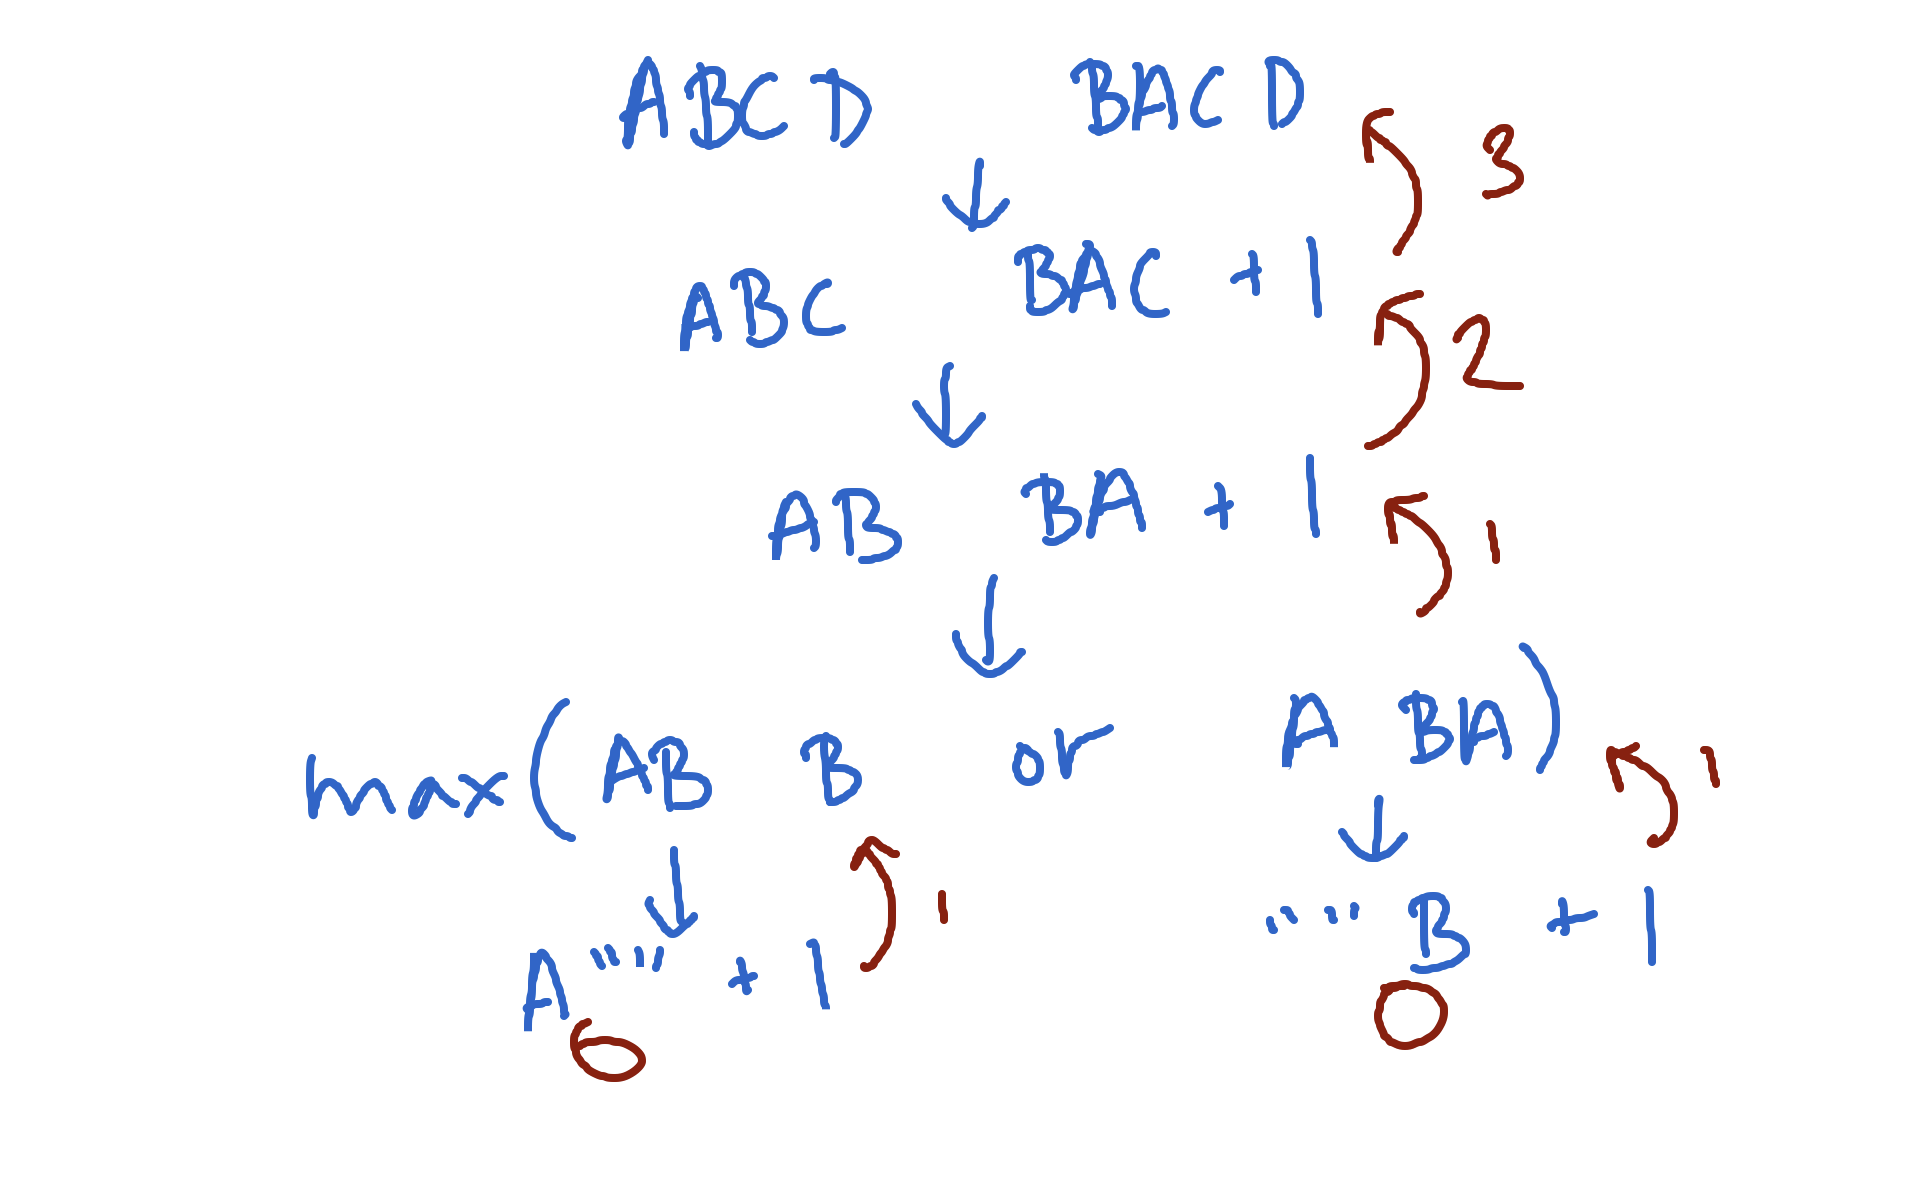 ABCD BACD
3
ABC BAC + 1
2
AB BA + 1
1
max(AB B or A BA)
1
A "" + 1 1 "" B + 1
0 0